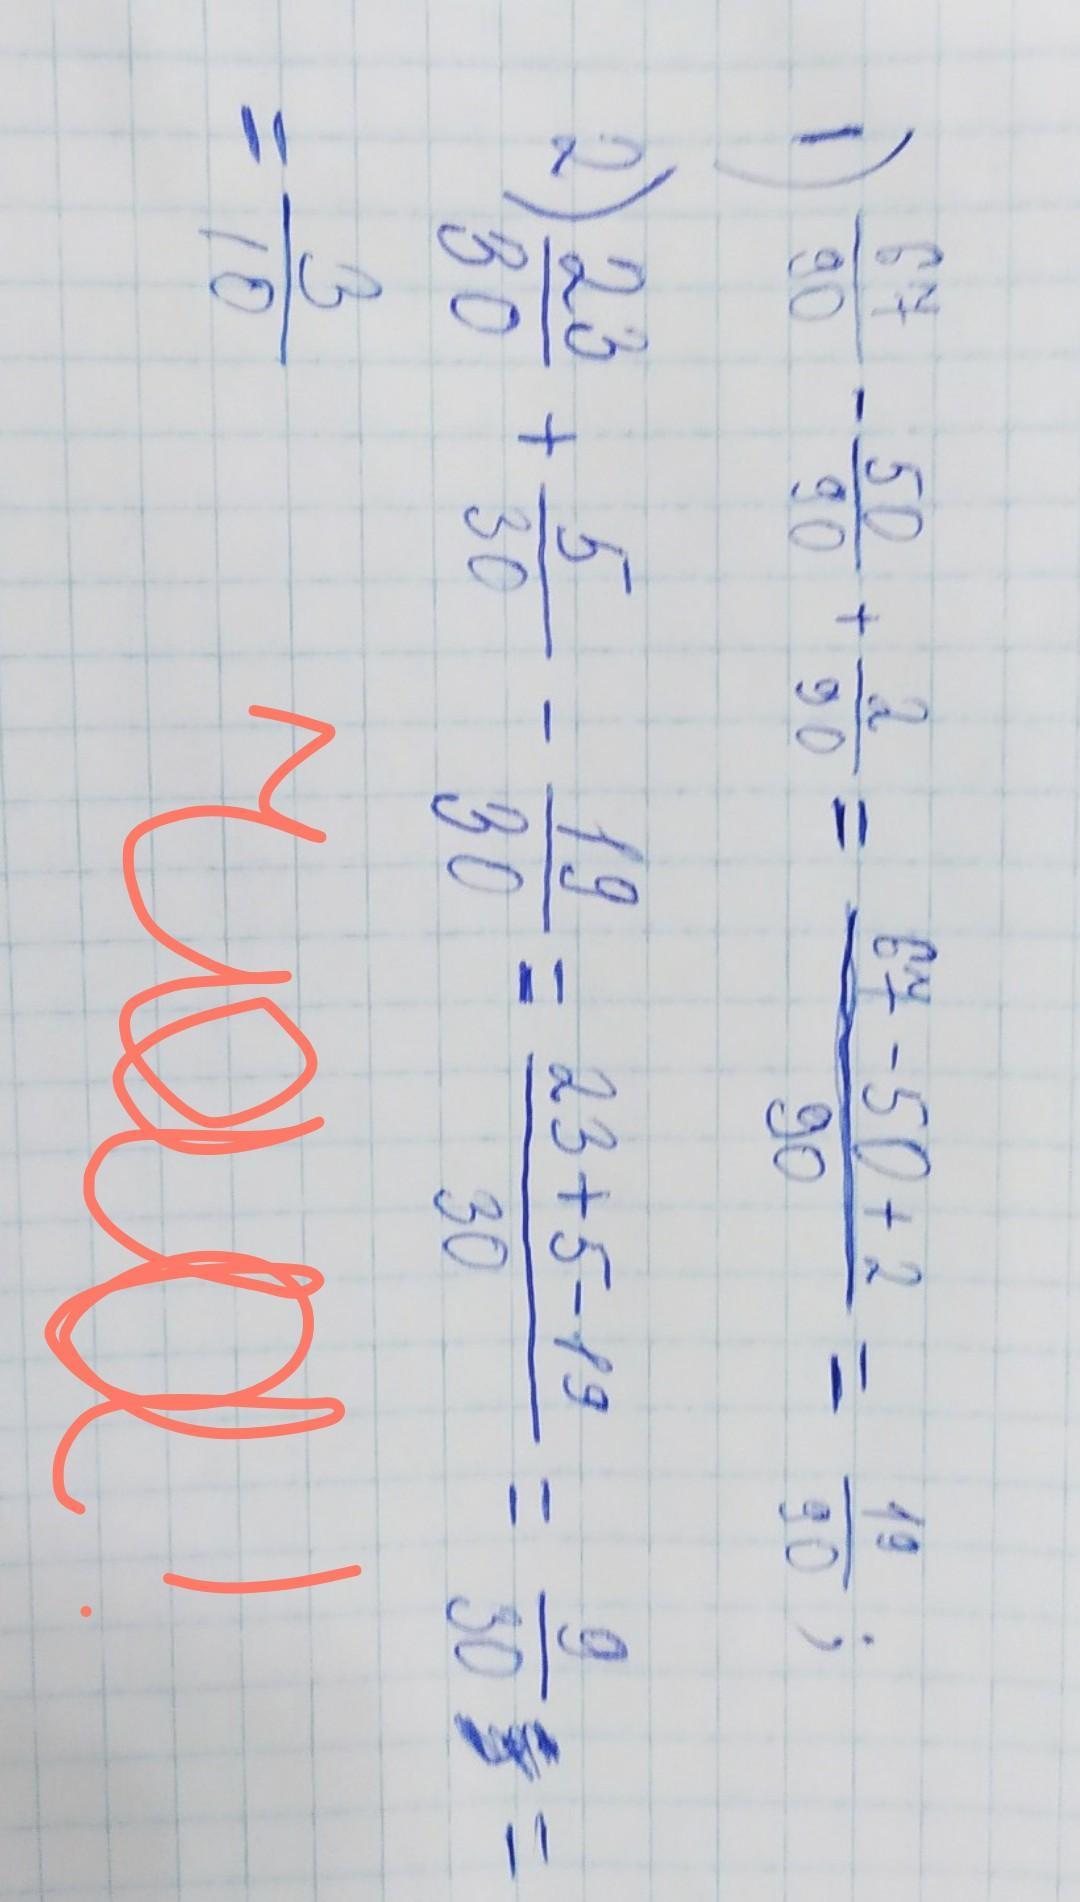 1) 67/90 - 50/90 + 2/90 = 67-50+2/90 = 19/90 ;
2) 23/30 + 5/30 - 19/30 = 23+5-19/30 = 9/30 =
= 3/10